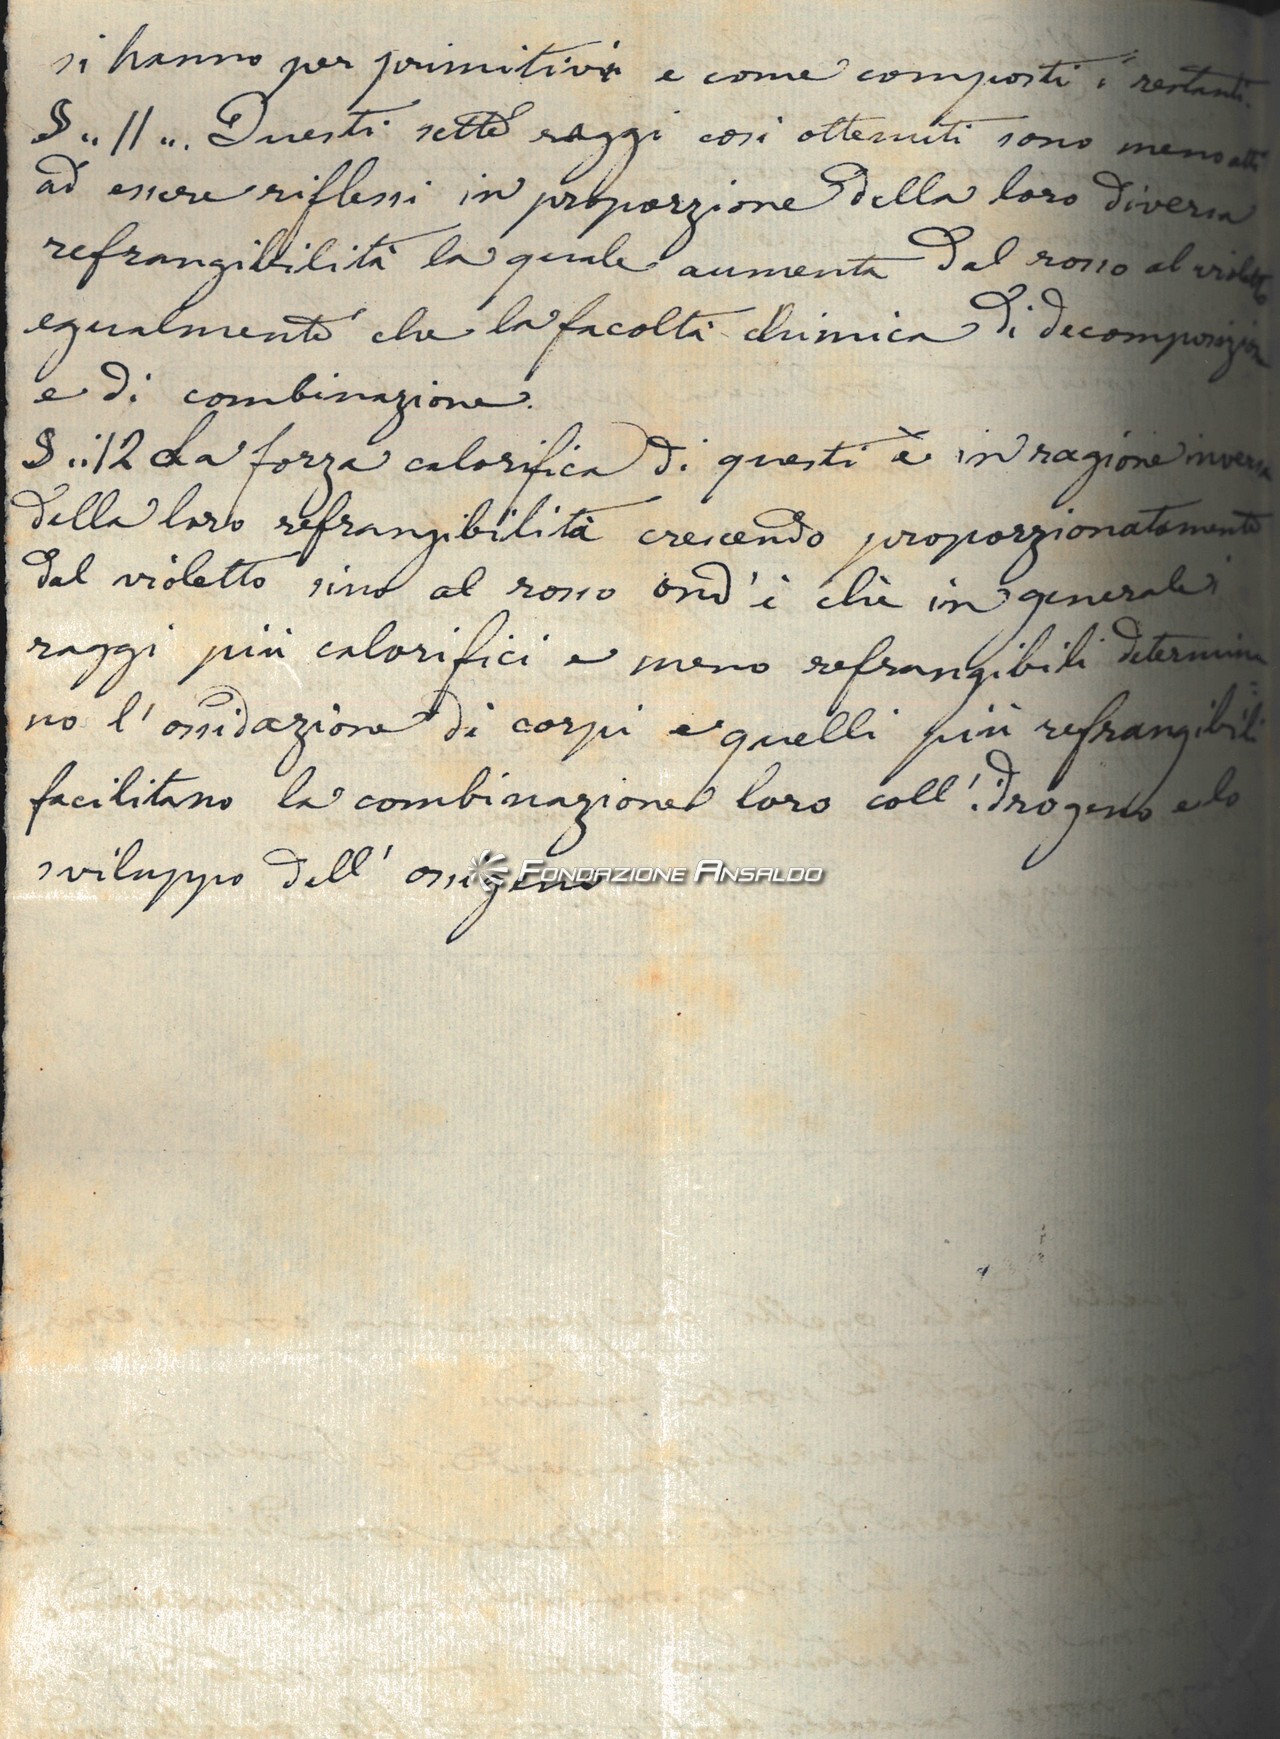 si hanno per primitivi e come composti i restanti.
§ „ 11 „. Questi sette raggi così ottenuti sono meno atti
ad essere riflessi in proporzione della loro diversa
refrangibilità la quale aumenta dal rosso al violetto
egualmente che la facoltà chimica di decomposizione
e di combinazione.
§ „ 12 La forza calorifica di questi è in ragione inversa
della loro refrangibilità crescendo proporzionatamente
dal violetto sino al rosso ond'è chè in generale i
raggi più calorifici e meno refrangibili determina
no l'ossidazione di corpi e quelli più refrangibili
facilitano la combinazione loro coll'idrogeno e lo
sviluppo dell'ossigeno
FONDAZIONE ANSALDO